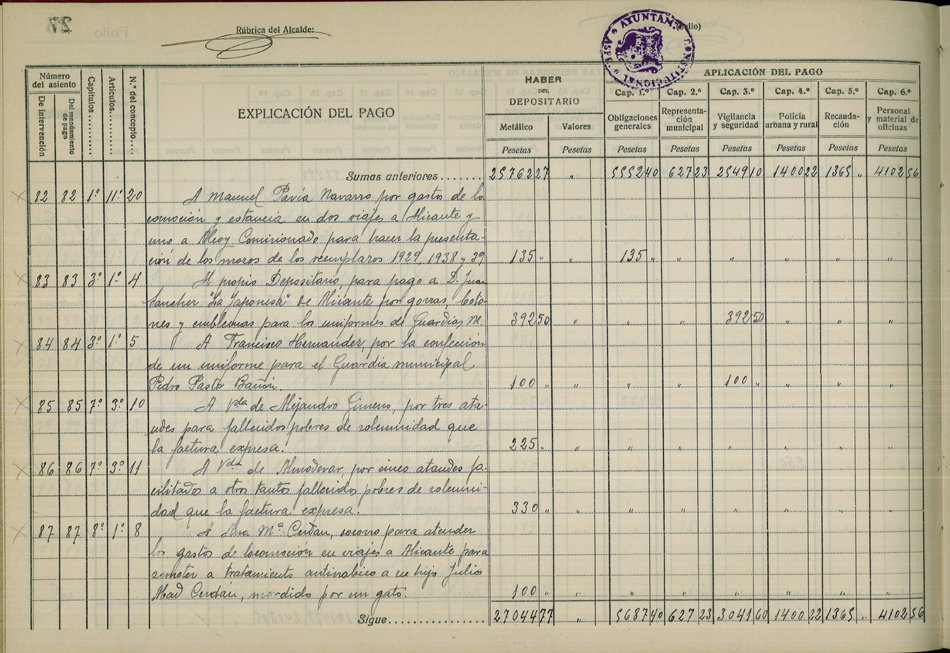 27
Rúbrica del Alcalde:
AYUNTAM. CONSTITUCIONAL
Número del asiento
De intervención
Del mandamiento de pago
Capítulos
Artículos
N.º del concepto
EXPLICACIÓN DEL PAGO
HABER DEL DEPOSITARIO
Metálico
Valores
Pesetas Pesetas
APLICACIÓN DEL PAGO
Cap. 1.º Cap. 2.º Cap. 3.º Cap. 4.º Cap. 5.º Cap. 6.º
Obligaciones generales
Representación municipal
Vigilancia y seguridad
Policía urbana y rural
Recaudación
Personal y material de oficinas
Pesetas Pesetas Pesetas Pesetas Pesetas Pesetas
Sumas anteriores 25762 27 " 5552 40 627 23 2549 10 1400 22 1365 " 4102 56
82 82 1º 11º 20 A Manuel Pavía Navarro por gasto de lo
comoción y estancia en dos viajes a Alicante y
uno a Alcoy Comisionado para hacer la presenta-
ción de los mozos de los reemplazos 1929, 1938 y 39 135 " " 135 " " " " " "
83 83 3º 1º 4 Al propio Depositario, para pago a D. Juan
Sanchez "La Japonesa" de Alicante por gorras, boto-
nes y emblemas para los uniformes de Guardias M. 392 50 " " " 392 50 " " "
84 84 3º 1º 5 A Francisco Hernandez, por la confección
de un uniforme para el Guardia municipal
Pedro Pastor Bañón. 100 " " " " 100 " " " "
85 85 7º 3º 10 A Vda de Alejandro Gimeno, por tres ata-
udes para fallecidos pobres de solemnidad que
la factura expresa. 225 " " " " " " " "
86 86 7º 3º 11 A Vda de Almodovar, por cinco ataudes fa-
cilitados a otros tantos fallecidos pobres de solemni-
dad que la factura expresa. 330 " " " " " " " "
87 87 8º 1º 8 A Mª Cerdán, socorro para atender
los gastos de locomoción en viajes a Alicante para
someter a tratamiento antirrabico a su hijo Julio
Abad Cerdán, mordido por un gato. 100 " " " " " " " "
Sigue 27044 77 " 5687 40 627 23 3041 60 1400 22 1365 " 4102 56